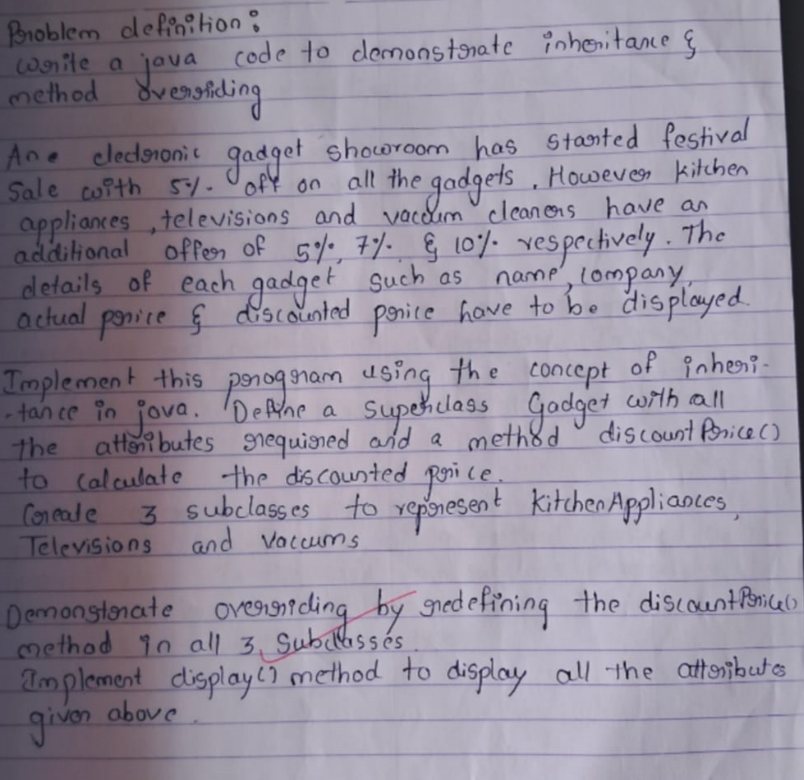 Problem definition:
write a java code to demonstrate inheritance &
method overriding
An electronic gadget showroom has started festival
Sale with 5% off on all the gadgets. However kitchen
appliances, televisions and vaccum cleaners have an
additional offer of 5%, 7% & 10% respectively. The
details of each gadget such as name, company,
actual price & discounted price have to be displayed.
Implement this program using the concept of inheri-
-tance in java. Define a superclass Gadget with all
the attributes required and a method discountPrice()
to calculate the discounted price.
Create 3 subclasses to represent KitchenAppliances,
Televisions and Vaccums
Demonstrate overriding by redefining the discountPrice()
method in all 3 Subclasses.
Implement display() method to display all the attributes
given above.